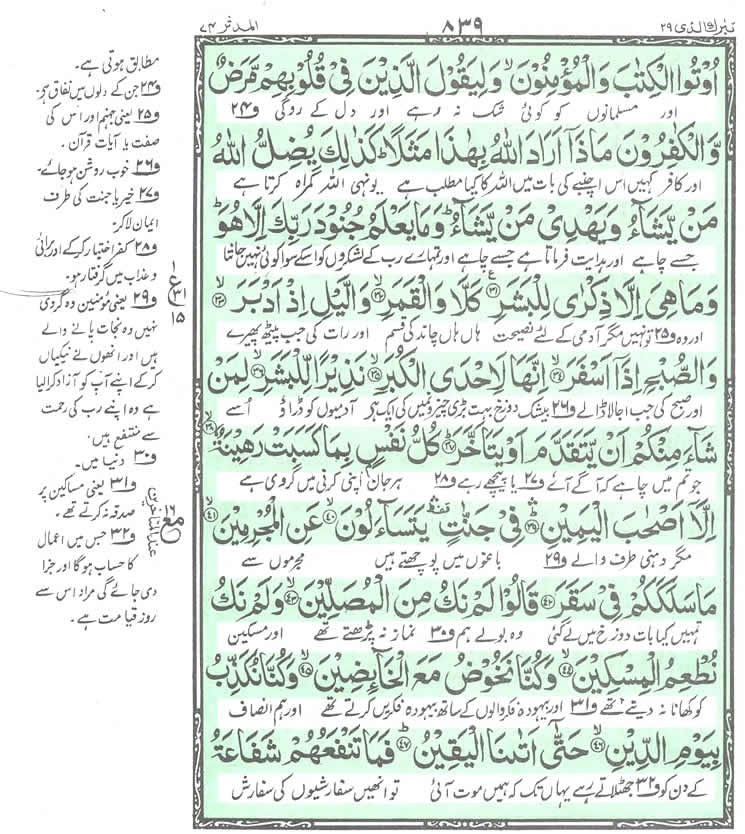 تبٰرك الذى ٢٩
٨٣٩
المدثر ٧٤
اُوْتُوا الْكِتٰبَ وَالْمُؤْمِنُوْنَ ۙ وَلِيَقُوْلَ الَّذِيْنَ فِيْ قُلُوْبِهِمْ مَّرَضٌ
اور مسلمانوں کو کوئی شک نہ رہے اور دل کے روگی ف۲۴
وَّالْكٰفِرُوْنَ مَاذَآ اَرَادَ اللّٰهُ بِهٰذَا مَثَلًا ؕ كَذٰلِكَ يُضِلُّ اللّٰهُ
اور کافر کہیں اس اچنبے کی بات میں اللہ کا کیا مطلب ہے یونہی اللہ گمراہ کرتا ہے
مَنْ يَّشَآءُ وَيَهْدِيْ مَنْ يَّشَآءُ ؕ وَمَا يَعْلَمُ جُنُوْدَ رَبِّكَ اِلَّا هُوَ ؕ
جسے چاہے اور ہدایت فرماتا ہے جسے چاہے اور تمہارے رب کے لشکروں کو اسکے سوا کوئی نہیں جانتا
وَمَا هِيَ اِلَّا ذِكْرٰى لِلْبَشَرِ ۝۳۱ كَلَّا وَالْقَمَرِ ۝۳۲ وَالَّيْلِ اِذْ اَدْبَرَ ۝۳۳
اور وہ ف۲۵ تو نہیں مگر آدمی کے لئے نصیحت ہاں ہاں چاند کی قسم اور رات کی جب پیٹھ پھیرے
وَالصُّبْحِ اِذَآ اَسْفَرَ ۝۳۴ اِنَّهَا لَاِحْدَى الْكُبَرِ ۝۳۵ نَذِيْرًا لِّلْبَشَرِ ۝۳۶ لِمَنْ
اور صبح کی جب اجالا ڈالے ف۲۶ بیشک دوزخ بہت بڑی چیزوں میں کی ایک ہے آدمیوں کو ڈراؤ اُسے
شَآءَ مِنْكُمْ اَنْ يَّتَقَدَّمَ اَوْ يَتَاَخَّرَ ۝۳۷ كُلُّ نَفْسٍۭ بِمَا كَسَبَتْ رَهِيْنَةٌ ۝۳۸
جو تم میں چاہے کہ آگے آئے ف۲۷ یا پیچھے رہے ف۲۸ ہر جان اپنی کرنی میں گروی ہے
اِلَّآ اَصْحٰبَ الْيَمِيْنِ ۝۳۹ فِيْ جَنّٰتٍ ۛ يَتَسَآءَلُوْنَ ۝۴۰ عَنِ الْمُجْرِمِيْنَ ۝۴۱
مگر دہنی طرف والے ف۲۹ باغوں میں پوچھتے ہیں مجرموں سے
مَا سَلَكَكُمْ فِيْ سَقَرَ ۝۴۲ قَالُوْا لَمْ نَكُ مِنَ الْمُصَلِّيْنَ ۝۴۳ وَلَمْ نَكُ
تمہیں کیا بات دوزخ میں لے گئی وہ بولے ہم ف۳۰ نماز نہ پڑھتے تھے اور مسکین
نُطْعِمُ الْمِسْكِيْنَ ۝۴۴ وَكُنَّا نَخُوْضُ مَعَ الْخَآئِضِيْنَ ۝۴۵ وَكُنَّا نُكَذِّبُ
کو کھانا نہ دیتے تھے ف۳۱ اور بیہودہ فکر والوں کے ساتھ بیہودہ فکریں کرتے تھے اور ہم انصاف
بِيَوْمِ الدِّيْنِ ۝۴۶ حَتّٰۤى اَتٰىنَا الْيَقِيْنُ ۝۴۷ فَمَا تَنْفَعُهُمْ شَفَاعَةُ
کے دن کو ف۳۲ جھٹلاتے رہے یہاں تک کہ ہمیں موت آئی تو انھیں سفارشیوں کی سفارش
مطابق ہوتی ہے۔
ف۲۴ جن کے دلوں میں نفاق ہے۔
ف۲۵ یعنی جہنم اور اس کی
صفت یا آیات قرآن۔
ف۲۶ خوب روشن ہو جائے۔
ف۲۷ خیر یا جنت کی طرف
ایمان لا کر۔
ف۲۸ کفر اختیار کر کے اور برائی
و عذاب میں گرفتار ہو۔
ف۲۹ یعنی مؤمنین وہ گروی
نہیں وہ نجات پانے والے
ہیں اور انھوں نے نیکیاں
کر کے اپنے آپ کو آزاد کرا لیا
ہے وہ اپنے رب کی رحمت
سے منتفع ہیں۔
ف۳۰ دنیا میں۔
ف۳۱ یعنی مساکین پر
صدقہ نہ کرتے تھے۔
ف۳۲ جس میں اعمال
کا حساب ہو گا اور جزا
دی جائے گی مراد اس سے
روز قیامت ہے۔
١
ع
٣١
١٥
١٦
مع
عند المتأخرين